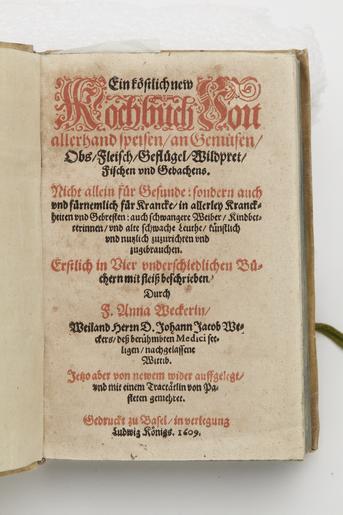 Ein köstlich new
Kochbuch Von
allerhand speisen/an Gemüsen/
Obs/Fleisch/Geflügel/Wildpret/
Fischen vnd Gebachens.
Nicht allein für Gesunde: sondern auch
vnd fürnemlich für Krancke/in allerley Kranck-
heiten vnd Gebresten: auch schwangere Weiber/Kindbet-
terinnen/vnd alte schwache Leuthe/künstlich
vnd nutzlich zuzurichten vnd
zugebrauchen.
Erstlich in Vier vnderschiedlichen Bü-
chern mit fleiß beschrieben/
Durch
F. Anna Weckerin/
Weiland Herrn D. Johann Jacob We-
ckers/deß berühmbten Medici see-
ligen/nachgelassene
Wittib.
Jetzo aber von newem wider auffgelegt/
vnd mit einem Tractätlin von Pa-
steten gemehret.
Gedruckt zu Basel/in verlegung
Ludwig Königs. 1609.